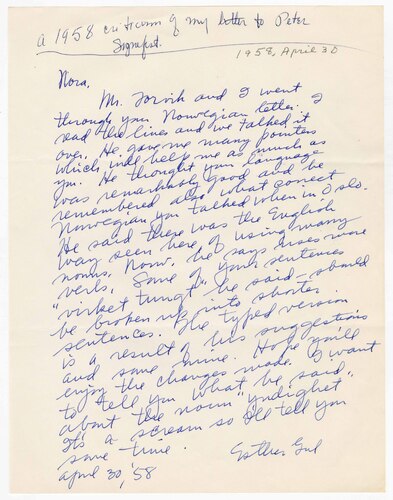 a 1958 criticism of my letter to Peter
Signafest.
1958, April 30
Nora,
Mr. Torvik and I went
through your Norwegian letter. I
read the lines and we talked it
over. He gave me many pointers
which will help me as much as
you. He thought your language
was remarkably good and he
remembered also what correct
Norwegian you talked when in Oslo.
He said there was the English
way seen here of using many
nouns. Now, he says uses more
verbs. Some of your sentences
"virket tungt" he said – should
be broken up into shorter
sentences. The typed version
is a result of his suggestions
and some mine. Hope you'll
enjoy the changes made. I want
to tell you what he said
about the noun "yndighet".
It's a scream so I'll tell you
some time.
Esther Gul
April 30, '58